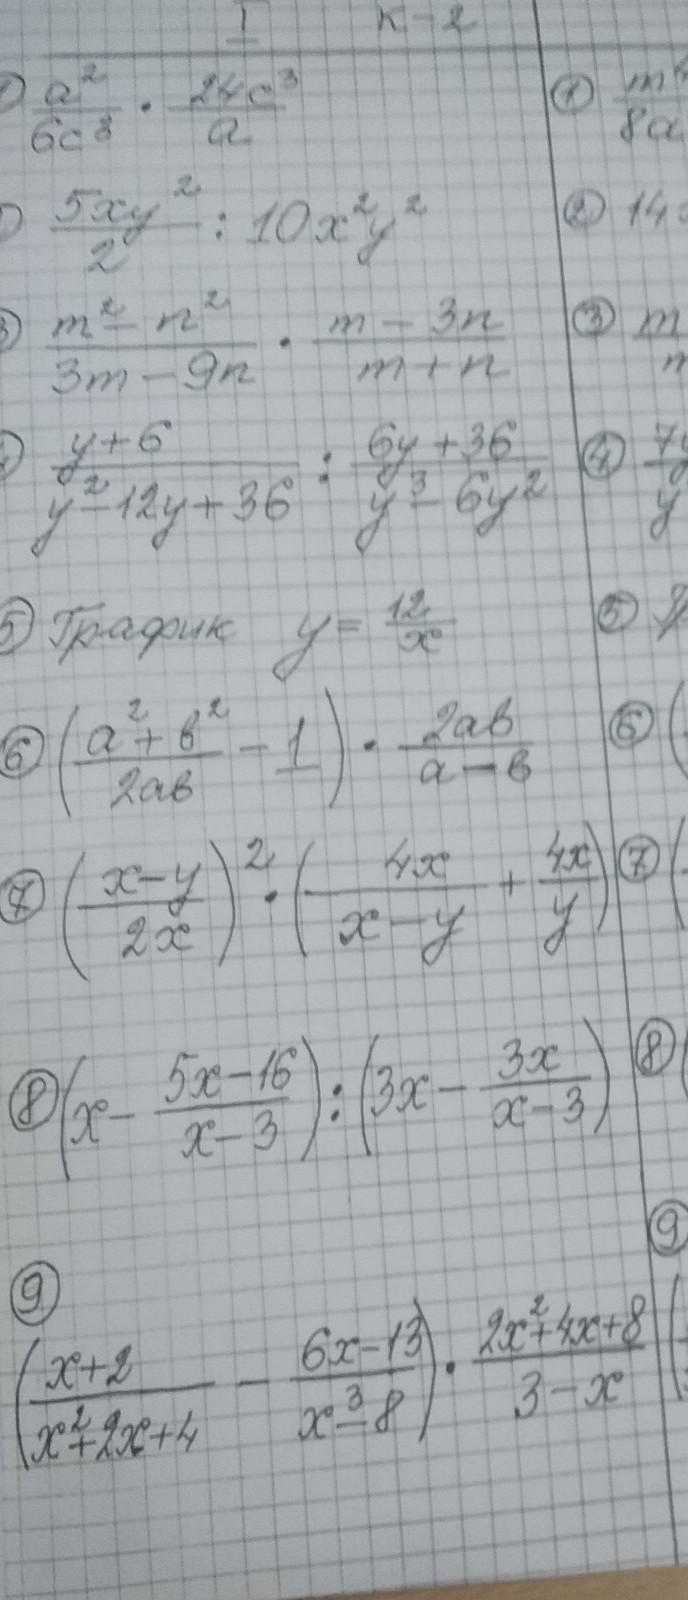 I K-2
a²/6c³ · 24c³/a
5xy²/2 : 10x²y²
(m² - n²)/(3m - 9n) · (m - 3n)/(m + n)
(y + 6)/(y² - 12y + 36) : (6y + 36)/(y³ - 6y²)
⑤ График y = 12/x
⑥ ((a² + в²)/2ав - 1) · 2ав/(a - в)
⑦ ((x - y)/2x)² · (4x/(x - y) + 4x/y)
⑧ (x - (5x - 16)/(x - 3)) : (3x - 3x/(x - 3))
⑨
((x + 2)/(x² + 2x + 4) - (6x - 13)/(x³ - 8)) · (2x² + 4x + 8)/(3 - x)
① m /8a
② 14
③ m
④ 7y/y
⑤
⑥ (
⑦ (
⑧ (
⑨
(